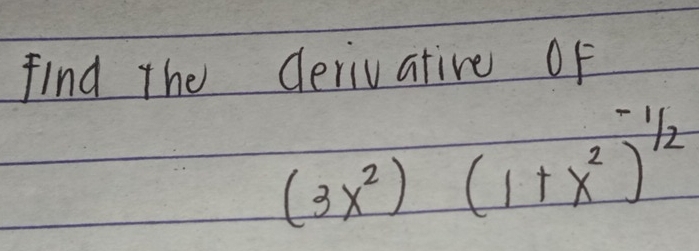 Find the derivative OF
(3x²) (1+x²)^-1/2